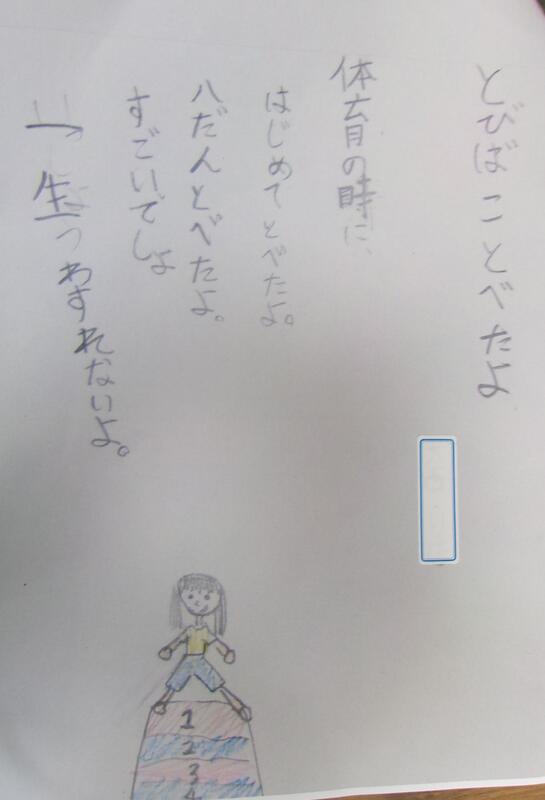 とびばことべたよ
体育の時に、
はじめてとべたよ。
八だんとべたよ。
すごいでしょ
一生わすれないよ。
1
2
3
4